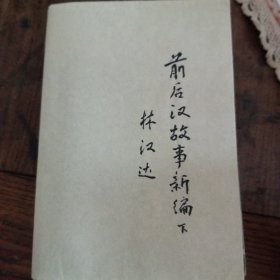 前后汉故事新编下
林汉达